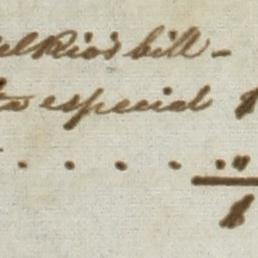 elRio's bill -
ta especial $
. . . . . "
$